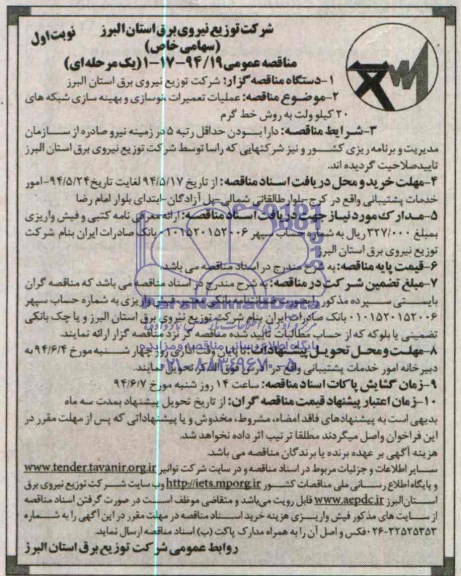 شرکت توزیع نیروی برق استان البرز
(سهامی خاص)
نوبت اول
مناقصه عمومی ۹۴/۱۹-۱۷-۱ (یک مرحله ای)
۱-دستگاه مناقصه گزار: شرکت توزیع نیروی برق استان البرز
۲-موضوع مناقصه: عملیات تعمیرات، نوسازی و بهینه سازی شبکه های
۲۰ کیلو ولت به روش خط گرم
۳-شرایط مناقصه: دارا بودن حداقل رتبه ۵ در زمینه نیرو صادره از سازمان
مدیریت و برنامه ریزی کشور و نیز شرکتهایی که راسا توسط شرکت توزیع نیروی برق استان البرز
تایید صلاحیت گردیده اند.
۴-مهلت خرید و محل دریافت اسناد مناقصه: از تاریخ ۹۴/۵/۱۷ لغایت تاریخ ۹۴/۵/۲۴- امور
خدمات پشتیبانی واقع در کرج-بلوار طالقانی شمالی-پل آزادگان-ابتدای بلوار امام رضا
۵-مدارک مورد نیاز جهت دریافت اسناد مناقصه: ارائه معرفی نامه کتبی و فیش واریزی
بمبلغ ۳۲۷/۰۰۰ ریال به شماره حساب سپهر ۰۱۰۱۵۲۰۱۵۲۰۰۶ بانک صادرات ایران بنام شرکت
توزیع نیروی برق استان البرز
۶-قیمت پایه مناقصه: به شرح مندرج در اسناد مناقصه می باشد
۷-مبلغ تضمین شرکت در مناقصه: به شرح مندرج در اسناد مناقصه می باشد که مناقصه گران
بایستی سپرده مذکور را بصورت ضمانتنامه بانکی یا فیش واریزی به شماره حساب سپهر
۰۱۰۱۵۲۰۱۵۲۰۰۶ بانک صادرات ایران بنام شرکت توزیع نیروی برق استان البرز و یا چک بانکی
تضمینی یا بلوکه که از حساب مطالبات تایید شده مطالعه گر نزد مناقصه گزار ارائه نمایند.
۸-مهلت و محل تحویل پیشنهادات: تا پایان وقت اداری روز چهار شنبه مورخ ۹۴/۶/۴ به
دبیرخانه امور خدمات پشتیبانی واقع در آدرس فوق الذکر تحویل نمایند.
۹-زمان گشایش پاکات اسناد مناقصه: ساعت ۱۴ روز شنبه مورخ ۹۴/۶/۷
۱۰-زمان اعتبار پیشنهاد قیمت مناقصه گران: از تاریخ تحویل پیشنهاد بمدت سه ماه
بدیهی است به پیشنهادهای فاقد امضاء، مشروط، مخدوش و یا پیشنهاداتی که پس از مهلت مقرر در
این فراخوان واصل میگردند مطلقا ترتیب اثر داده نخواهد شد.
هزینه آگهی بر عهده برنده یا برندگان مناقصه می باشد.
سایر اطلاعات و جزئیات مربوط در اسناد مناقصه و در سایت شرکت توانیر www.tender.tavanir.org.ir
و پایگاه اطلاع رسانی ملی مناقصات کشور http://iets.mporg.ir وب سایت شرکت توزیع نیروی برق
استان البرز www.aepdc.ir قابل رویت می باشد و متقاضی موظف است در صورت گرفتن اسناد مناقصه
از سایت های مذکور فیش واریزی هزینه خرید اسناد مناقصه در مهلت مقرر در این آگهی را به شماره
۰۲۶-۳۲۵۲۵۳۵۳ فکس و اصل آن را به همراه مدارک پاکت (ب) اسناد مناقصه ارسال نماید.
روابط عمومی شرکت توزیع برق استان البرز